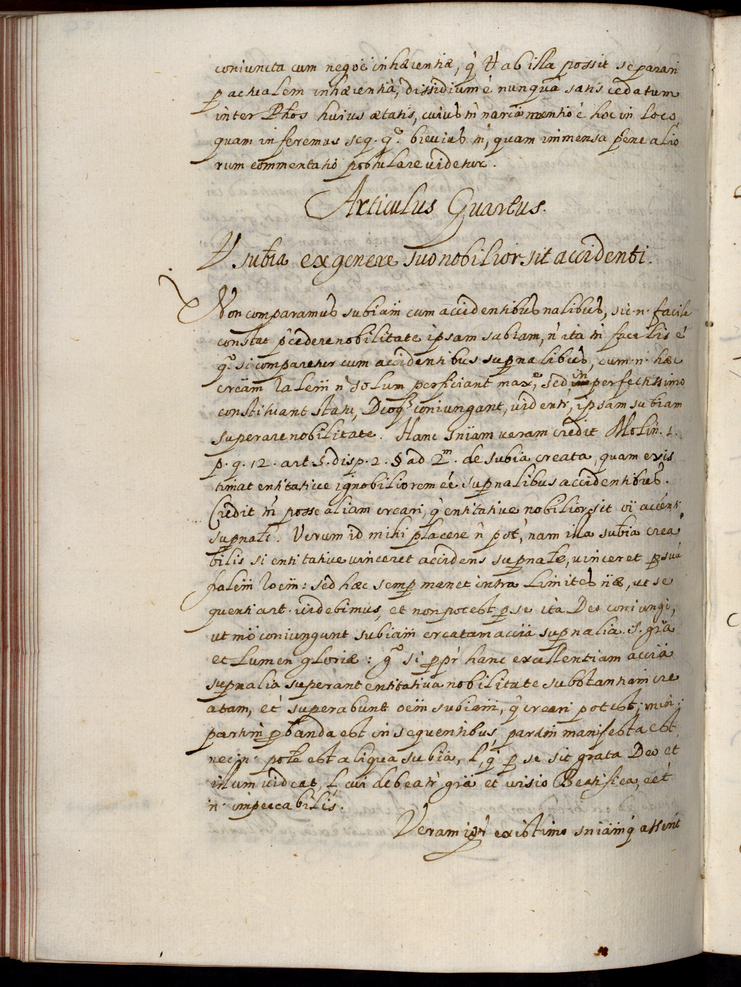 coniuncta cum negoe inhærentiæ, q̃ Ut ab illa possit separari
p actualem inhærentiã, dissidium ẽ nunquã satis cedatum
inter Phos huius ætatis, cuius tñ narrã mentio ẽ hoc in loco,
quam in feremus seq. qº. brevius tñ, quam immensa penè alio
rum commentatio postulare videtur.
Articulus Quartus.
V subia ex genere suo nobilior sit accidenti.
Non comparamus subiam cum accidentibus nalibus, sic .n. facile
constat p̃cedere nobilitate ipsam subiam, ñ ita tñ facilis ẽ
qº. si comparetur cum accidentibus supnalibus, cum .n. hæc
creãm ralem ñ solum perficiant maxe, sed in perfectissimo
constituant statu, Deoq̃ coniungant, videntr, ipsam subiam
superare nobilitate. Hanc sniam veram credit Molin. 1.
p. q. 12. art. 5. disp. 2. § ad 2m. de subia creata, quam exis
timat entitative ignobiliorem ẽe supnalibus accidentibus.
Credit tñ posse aliam creari, q̃ entitative nobilior sit oĩ accenti
supnali. Verum id mihi placere ñ pot, nam illa subia crea
bilis si entitative vinceret accidens supnale, vinceret p sua
nalem roem: sed hæc semp manet intra limites næ, ut se
quenti art. videbimus, et non potest p se ita Deo coniungi,
ut mõ coniungunt subiam creatam accia supnalia .s. gra
et Lumen gloriæ: qº. si ppr hanc excellentiam accia
supnalia superant entitativa nobilitate substantiam cre
atam, et superabunt oem subiam, q̃ creari potest; mior
partim pbanda est in sequentibus, partim manifesta est
nec .n. pole est aliqua subia, l, q̃ p se sit grata Deo et
illum videat, l cui debeatr gra et visio Beatifica, et
ñ impeccabilis.
Veram igr existimo sniam q̃ asserit